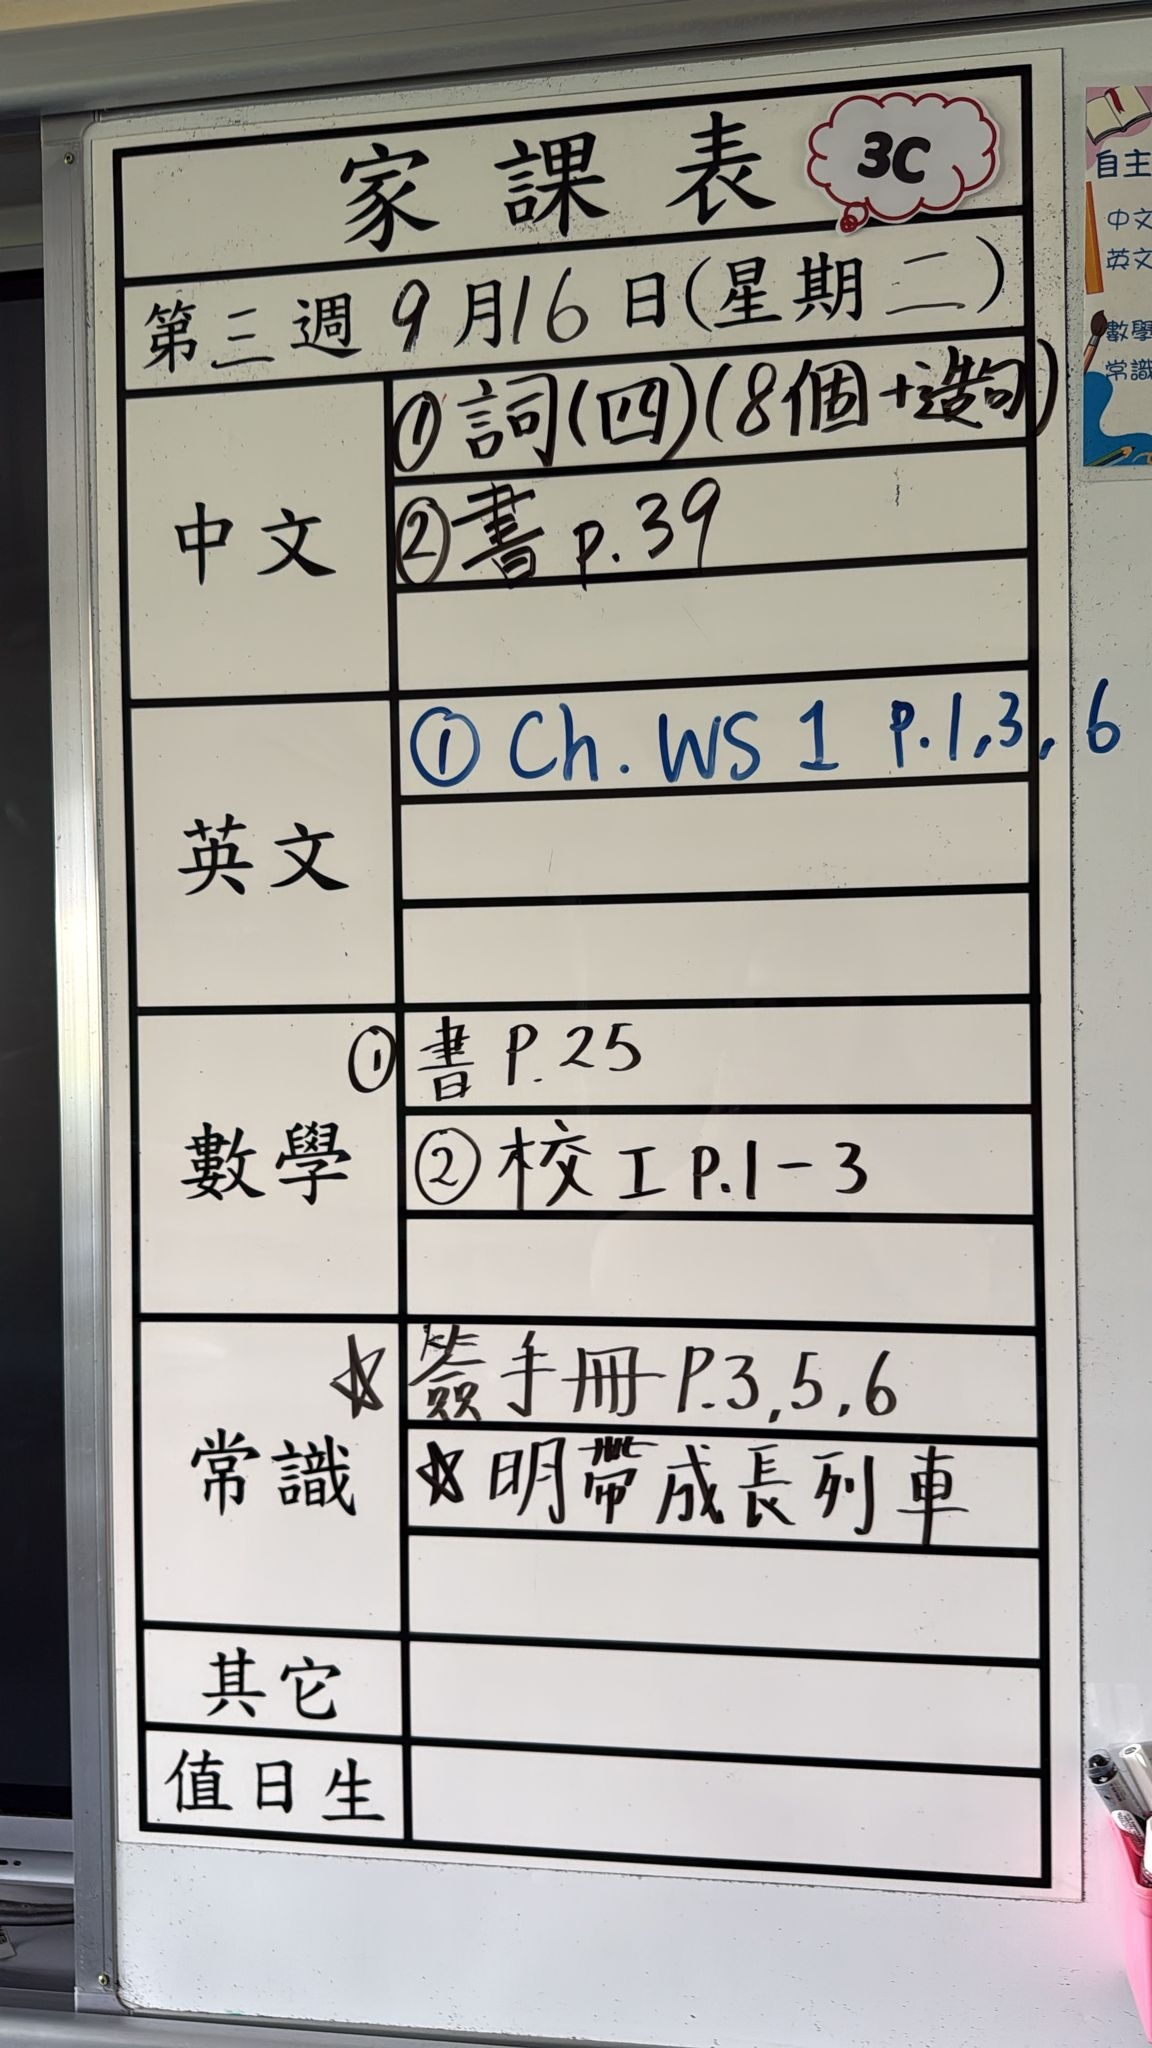 家課表 3C
第三週 9月16日(星期二)
中文
①詞(四)(8個+造句)
②書 p.39
英文
① Ch. WS 1 P.1,3,6
數學
① 書 P.25
② 校工 P.1-3
常識
☆ 簽手冊 P.3,5,6
☆ 明帶成長列車
其它
值日生
自主
中文
英文
數學
常識